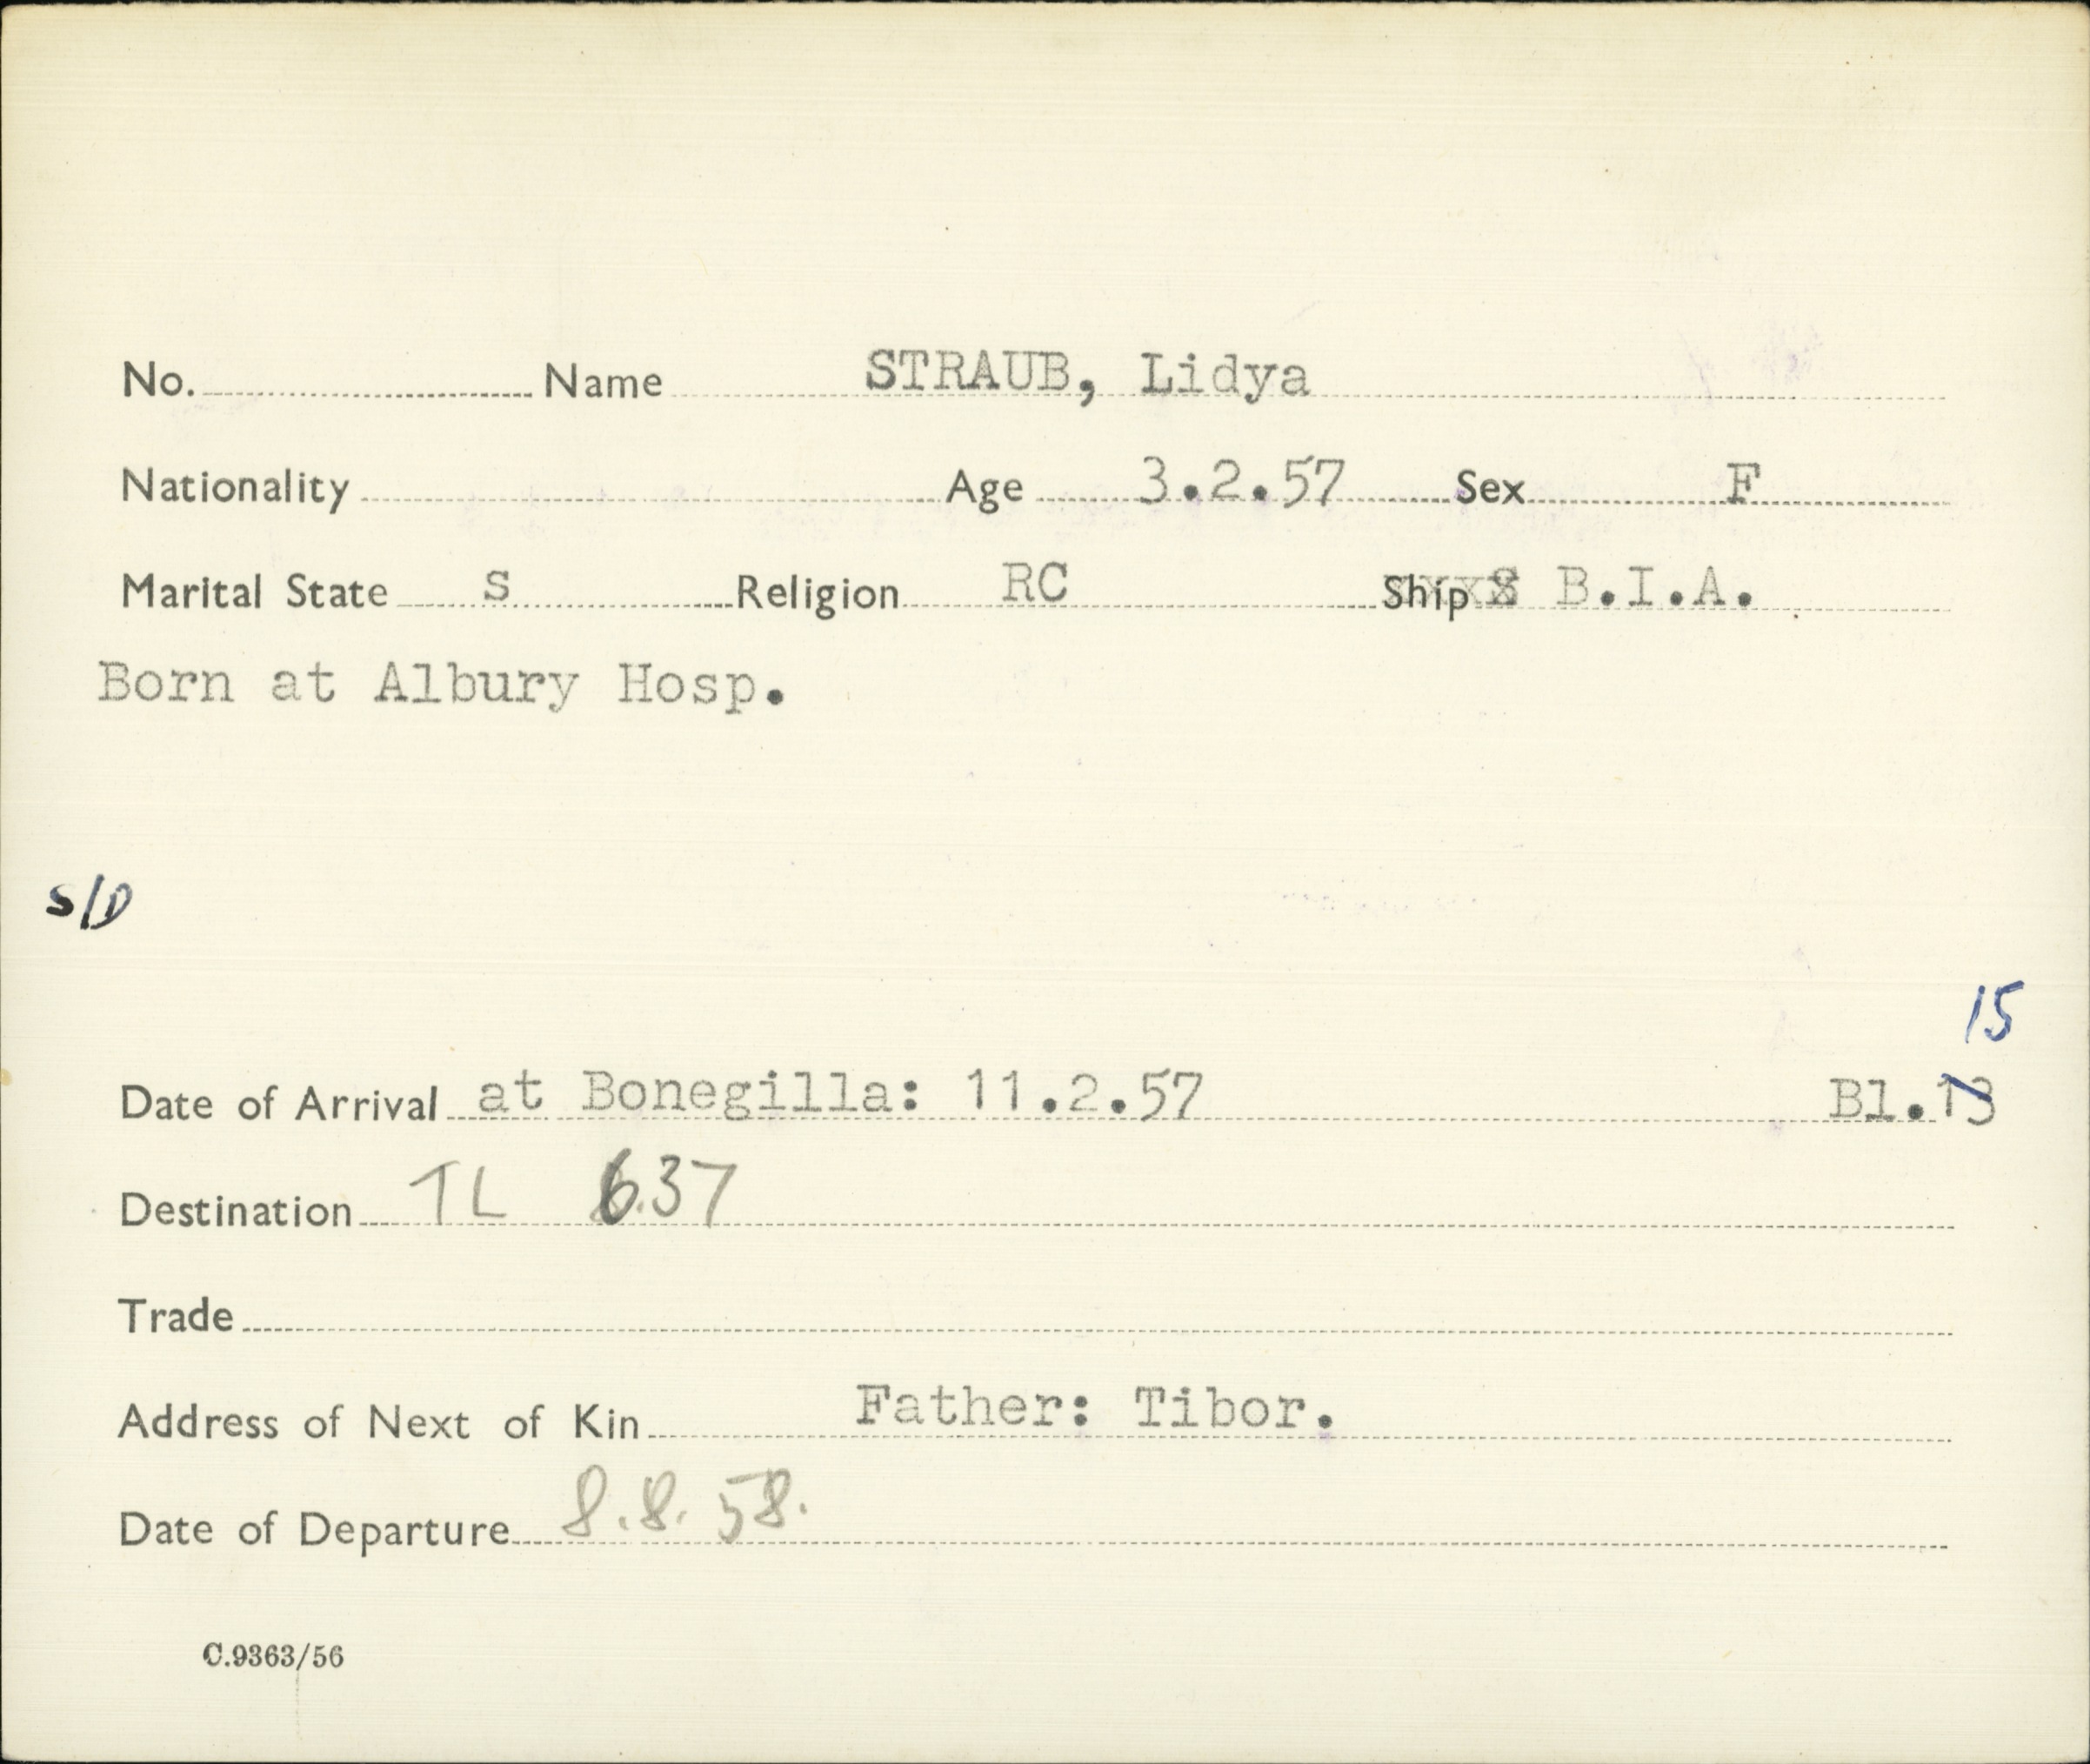 No. Name STRAUB, Lidya
Nationality Age 3.2.57 Sex F
Marital State S Religion RC Ship B.I.A.
Born at Albury Hosp.
S/D
15
Date of Arrival at Bonegilla: 11.2.57 Bl.13
Destination TL 637
Trade
Address of Next of Kin Father: Tibor.
Date of Departure 8.8.58.
C.9363/56